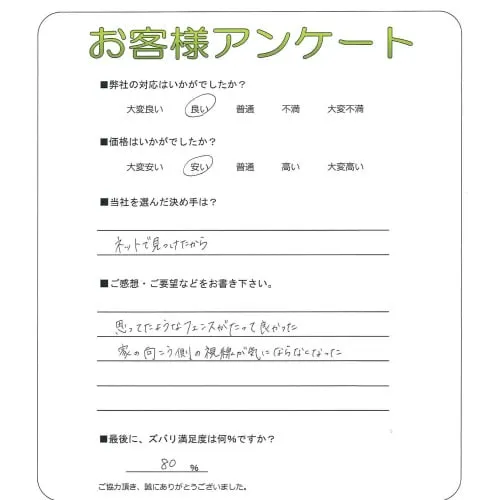 お客様アンケート
■弊社の対応はいかがでしたか？
大変良い 良い 普通 不満 大変不満
■価格はいかがでしたか？
大変安い 安い 普通 高い 大変高い
■当社を選んだ決め手は？
ネットで見つけたから
■ご感想・ご要望などをお書き下さい。
思ってたようなフェンスがたって良かった
家の向こう側の視線が気にならなくなった
■最後に、ズバリ満足度は何%ですか？
80 %
ご協力頂き、誠にありがとうございました。